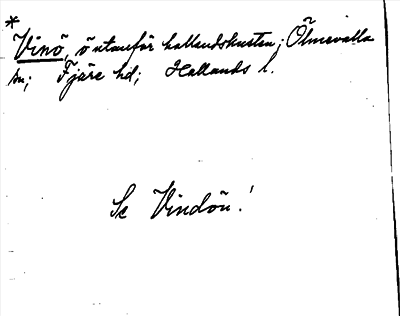 *
Vinö, ö utanför hallandskusten; Ölmevalla
sn; Fjäre hd; Hallands l.
Se Vindön!